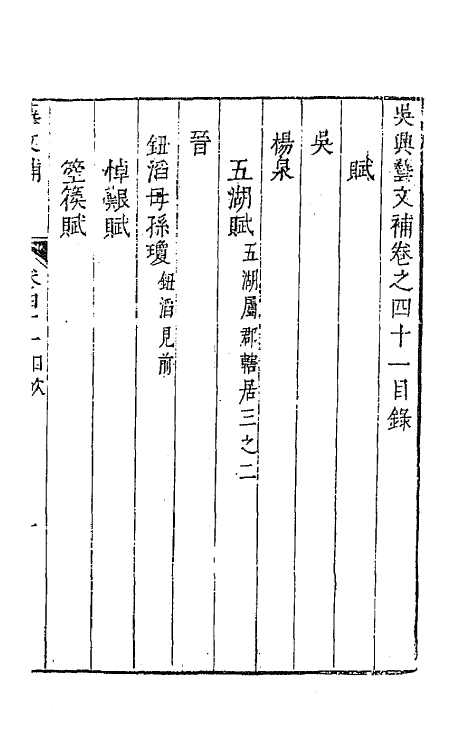 吳興藝文補卷之四十一目錄
賦
吳
楊泉
五湖賦五湖屬郡轄居三之二
晉
鈕滔母孫瓊鈕滔見前
悼艱賦
箜篌賦